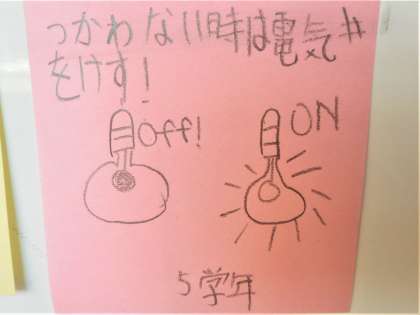 つかわない時は電気
をけす!
Off!
ON
5学年